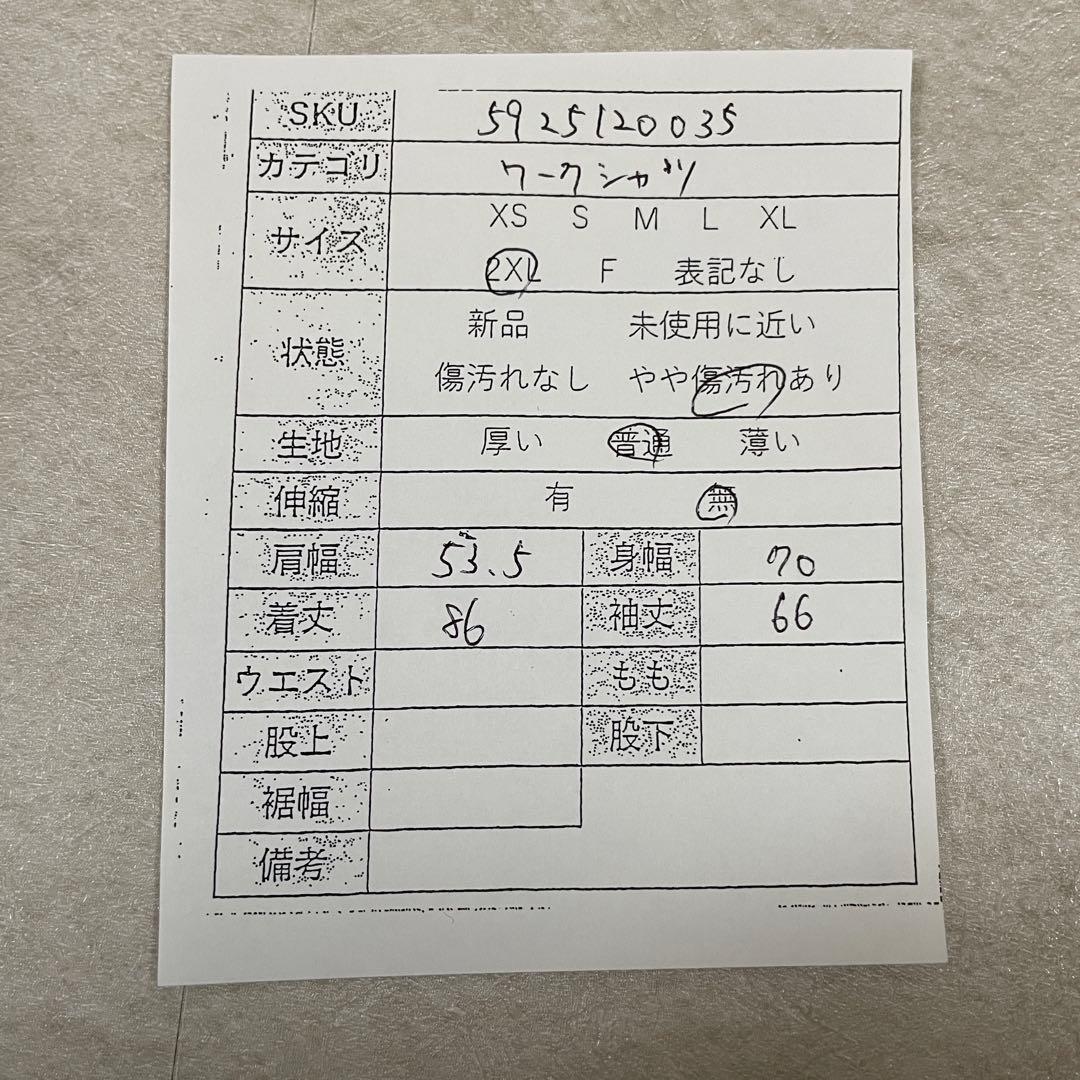 SKU 5925120035
カテゴリ ワークシャツ
サイズ XS S M L XL
2XL F 表記なし
状態 新品 未使用に近い
傷汚れなし やや傷汚れあり
生地 厚い 普通 薄い
伸縮 有 無
肩幅 53.5 身幅 70
着丈 86 袖丈 66
ウエスト もも
股上 股下
裾幅
備考